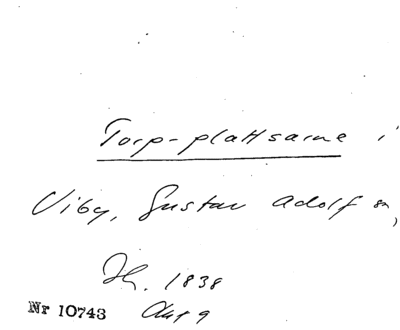 Torp-plattsarne i
Viby, Gustav Adolf sn,
Jk. 1838
Nr 10743 Akt 9